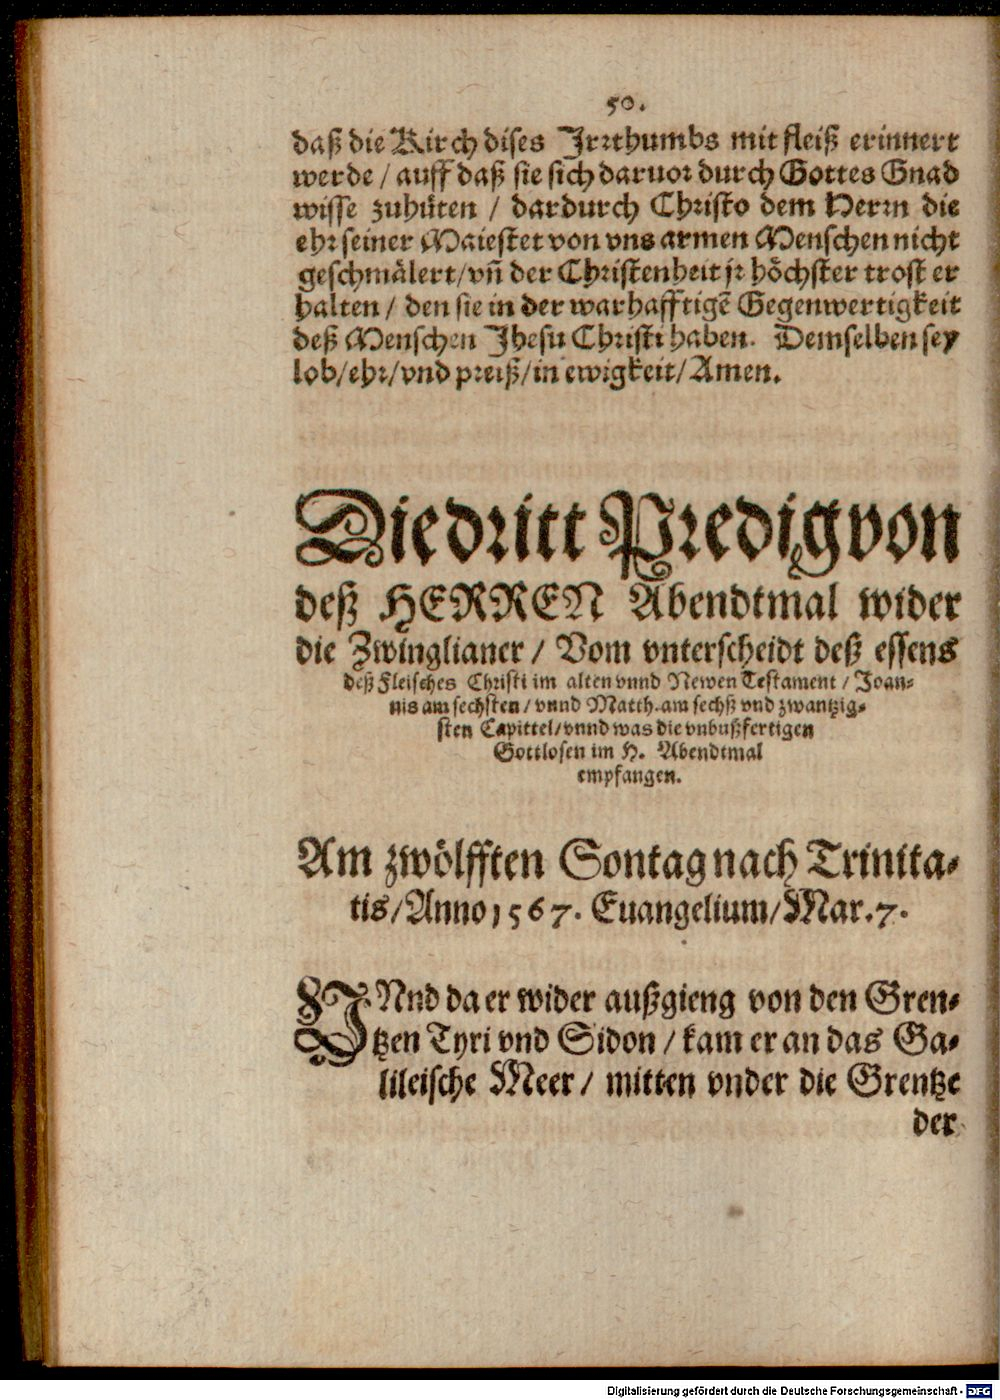 50.
daß die Kirch dises Jrrthumbs mit fleiß erinnert
werde / auff daß sie sich daruor durch Gottes Gnad
wisse zuhüten / dardurch Christo dem Herrn die
ehr seiner Maiestet von vns armen Menschen nicht
geschmälert/vn̄ der Christenheit jr höchster trost er
halten / den sie in der warhafftigē Gegenwertigkeit
deß Menschen Jhesu Christi haben. Demselben sey
lob/ehr/vnd preiß/in ewigkeit/Amen.
Die dritt Predig von
deß HERREN Abendtmal wider
die Zwinglianer / Vom vnterscheidt deß essens
deß Fleisches Christi im alten vnnd Newen Testament / Joan-
nis am sechsten / vnnd Matth. am sechß vnd zwantzig-
sten Capittel/vnnd was die vnbußfertigen
Gottlosen im H. Abendtmal
empfangen.
Am zwölfften Sontag nach Trinita-
tis/Anno 1567. Euangelium/Mar.7.
VNnd da er wider außgieng von den Gren-
tzen Tyri vnd Sidon / kam er an das Ga-
lileische Meer / mitten vnder die Grentze
der
Digitalisierung gefördert durch die Deutsche Forschungsgemeinschaft - DFG